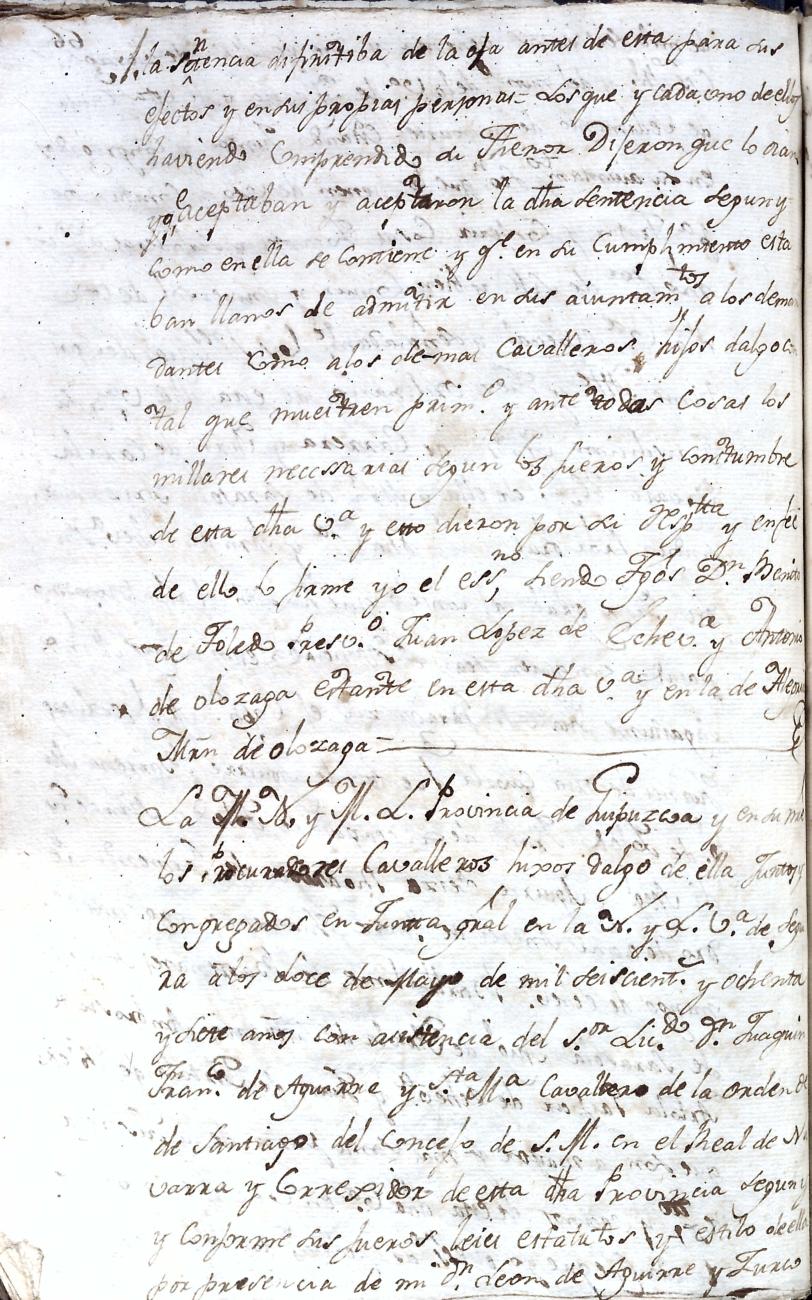 la sentencia difinitiba de la oja antes de esta para sus
efectos y en sus propias personas = los que y cada uno de ellos
haviendo comprendido su thenor Dijeron que lo oian
y q.e aceptaban y aceptaron la dha sentencia segun y
como en ella se contiene y q.e en su cumplimiento esta
ban llanos de admitir en sus aiuntam.tos a los deman
dantes como a los demas Cavalleros hijos dalgo con
tal que muestren prim.o y ante todas cosas los
millares necessarias segun los fueros y constumbre
de esta dha v.a y esto dieron por su respta y en fee
de ello lo firme yo el ess.no siendo tgos D.n Benito
de Toledo Presv.o Juan Lopez de Echev.a y Antonio
de olozaga estante en esta dha v.a y en la de Alegria
Mrn de olozaga =
La M. N. y M. L. Provincia de Guipuzcoa y en su nre
los Procuradores Cavalleros hixos dalgo de ella Juntos y
congregados en Junta gral en la N. y L. v.a de Segu
ra a los doce de Mayo de mil seiscient.s y ochenta
y siete años con asistencia del s.or Lic.do d.n Juaquin
Fran.co de Aguirre y S.ta M.a Cavallero de la orden
de Santiago del Concejo de S. M. en el Real de Na
varra y Correxidor de esta dha Provincia segun y
y conforme sus fueros leies estatutos y estilo de ella
por presencia de mi d.n Leon de Aguirre y Zurco